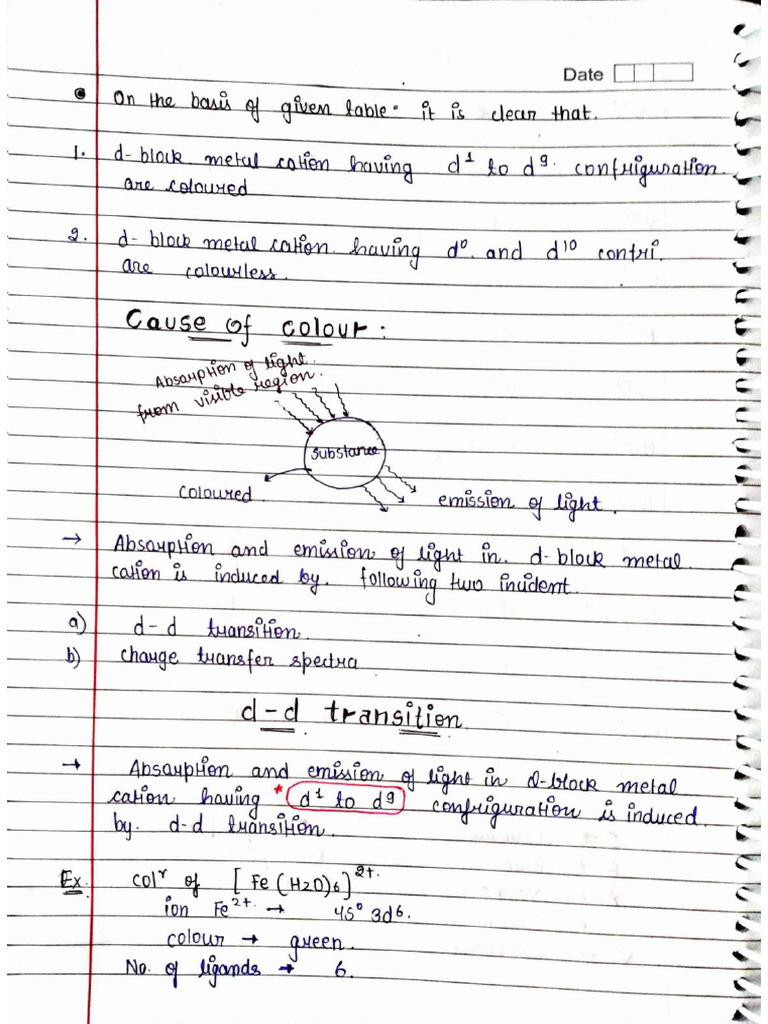 Date
On the basis of given table. it is clear that.
1. d-block metal cation having d¹ to d⁹. confriguration.
are coloured
2. d-block metal cation. having d⁰. and d¹⁰ confri.
are colourless.
Cause of colour :
Absorption of light.
from visible region.
Substance
coloured.
emission of light.
→ Absorption and emission of light in. d-block metal.
cation is induced by. following two incident.
a) d-d transition.
b) charge transfer spectra
d-d transition
→ Absorption and emission of light in d-block metal
cation having * d¹ to d⁹ confriguration is induced.
by. d-d transition.
Ex. colʳ of [Fe(H2O)6]²⁺.
ion Fe²⁺. → 4s⁰ 3d⁶.
colour → green.
No. of ligands → 6.